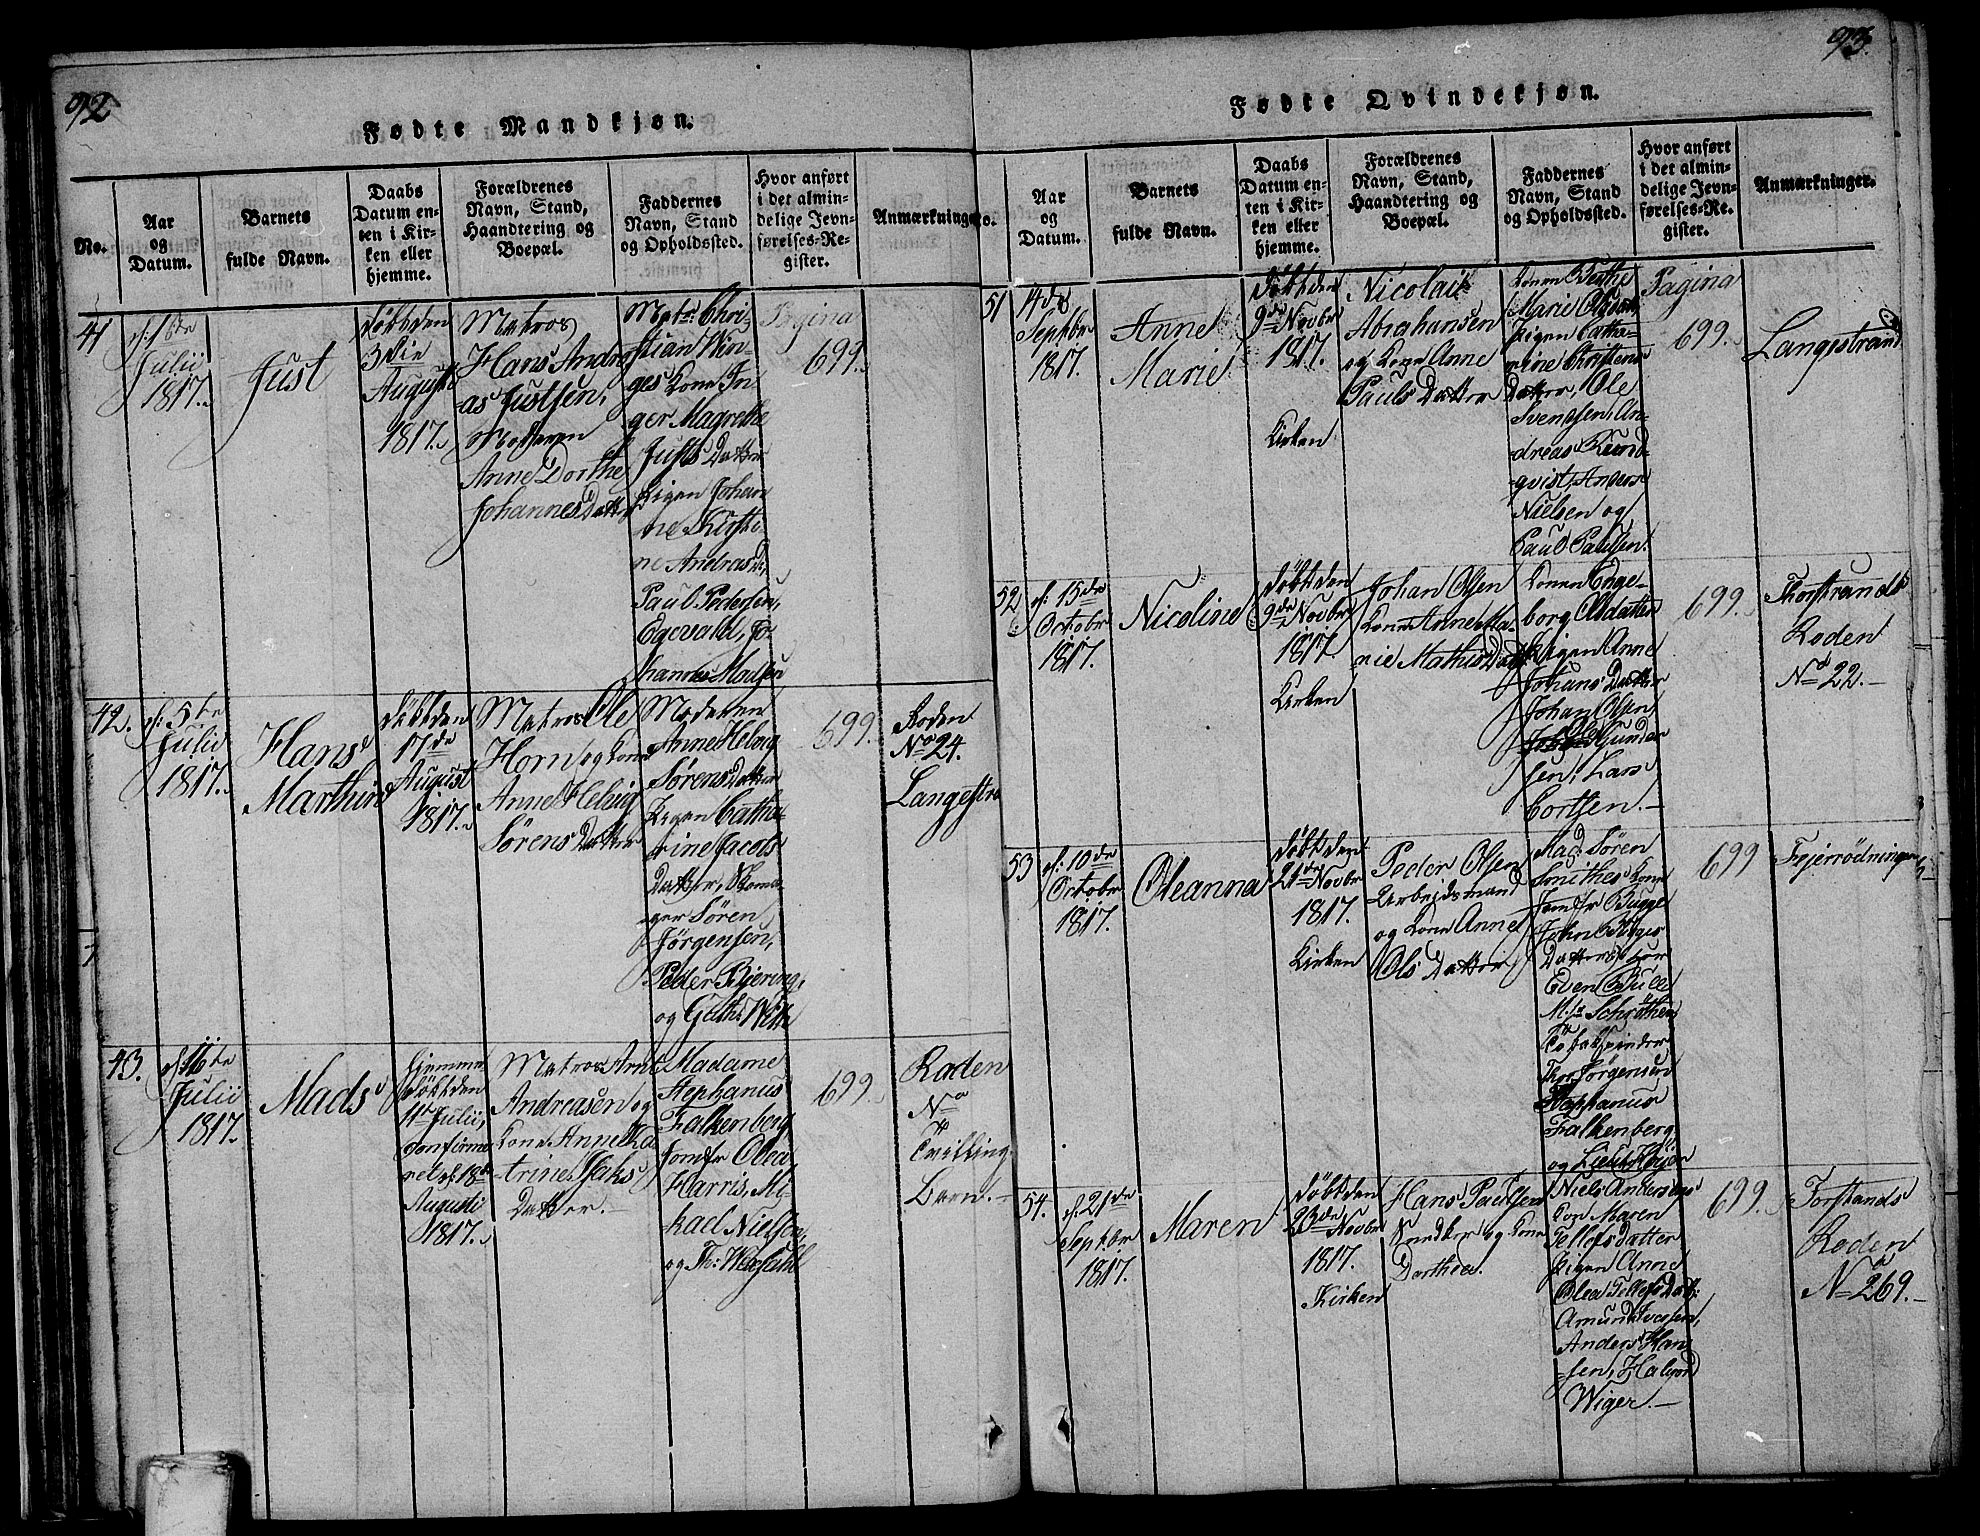 92
Fødte Mandkjøn.
No.
Aar
og
Datum.
Barnets
fulde Navn.
Daabs
Datum en-
ten i Kir-
ken eller
hjemme.
Forældrenes
Navn, Stand,
Haandtering og
Boepæl.
Faddernes
Navn, Stand
og Opholdssted.
Hvor anført
i det almin-
delige Jevn-
førelses-Re-
gister.
Anmærkninger
41
1ste
Julii
1817.
Just
døbt den
3die
August
1817.
Matros
Hans Andre
as Justsen,
Moderen
Anne Dorthe
Johannes Datter
Matr: Chri-
stian Win-
ges Kone In-
ger Magrethe
Justs Datter
Pigen Johan
ne Kirsti-
ne Andreas D.,
Paul Pedersen,
Egevald, Jo-
hannes Madsen
Pagina
699.
42.
d: 5te
Julii
1817.
Hans
Marthin
døbt den
17de
August
1817.
Matros Ole
Horn og Kone
Anne Helvig
Sørens Datter
Moderen
Anne Helvig
Sørens Datter
Pigen Catha-
rine Jacobs
Datter,
ger Søren
Jørgensen,
Peder Bjering,
og
699.
Roden
No 24.
Langestra
43.
d: 16te
Julii
1817.
Mads
hjemme
døbt den
Julii,
confirme
ret d: 18de
Augusti
1817.
Matros Arnt
Andreasen og
Kone Anne Ka
trine Isaks
Datter.
Madame
Stephanus
Falkenberg
Jomfr Olea
Harris, Mi-
kael Nielsen,
og Th: Wesseltel
699.
Roden
No
4
Tvilling
Barn.
93.
Fødte Qvindekjøn.
No.
Aar
og
Datum.
Barnets
fulde Navn.
Daabs
Datum en-
ten i Kir-
ken eller
hjemme.
Forældrenes
Navn, Stand,
Haandtering og
Boepæl.
Faddernes
Navn, Stand
og Opholdssted.
Hvor anført
i det almin-
delige Jevn-
førelses-Re-
gister.
Anmærkninger.
51
14de
Septbr
1817.
Anne
Marie
døbt den
9de Novbr
1817.
Kirken
Nicolai
Abrahansen
og Kone Anne
Pauls Datter
Konen Berthe
Marie Olsdatt
Pigen Catha-
rine Christens
Datter, Ole
Svendsen, An-
dreas Rund-
qvist, Anders
Nielsen og
Paul Paulsen.
Pagina
699.
Langestrand
52
d: 15de
Octobr
1817.
Nicoline
døbt den
9de Novbr
1817.
Kirken
Johan Olsen
Kone Anne Ma-
rie Mathis Datt
Konen Inge-
borg Olsdatter
Pigen Anne
Johans Datter
Johan Olsen
Ole Gunder
sen, Lars
Cortsen.
699.
Thorstrands
Roden
No 22.
53
d: 10de
Octobr
1817.
Oleanna
døbt den
21de Novbr
1817.
Kirken
Peder Olsen
Arbeidsmand
og Kone Anne
Ols Datter
Mad. Søren
Smithes Kone
Jomfr Bugge
John Bugges
Datter, Hor
Even Bulle
M. Schrøthen
Tobakspinder
Thor Jørgensen
Staphanus
Falkenberg
og Lieut: Høyer
699
Fejerrødningen
54.
d: 21de
Septbr
1817.
Maren
døbt den
23de Novbr
1817.
Kirken
Hans Paulsen
Snedker og Kone
Dorthea.
Niels Andersens
Kon Maren
Tellefsdatter
Pigen Anne
Olea Tellefs Datt:
Amund Iversen,
Anders Han
sen, Halvor
Wiger.
699.
Torstrands
Roden
No 269.